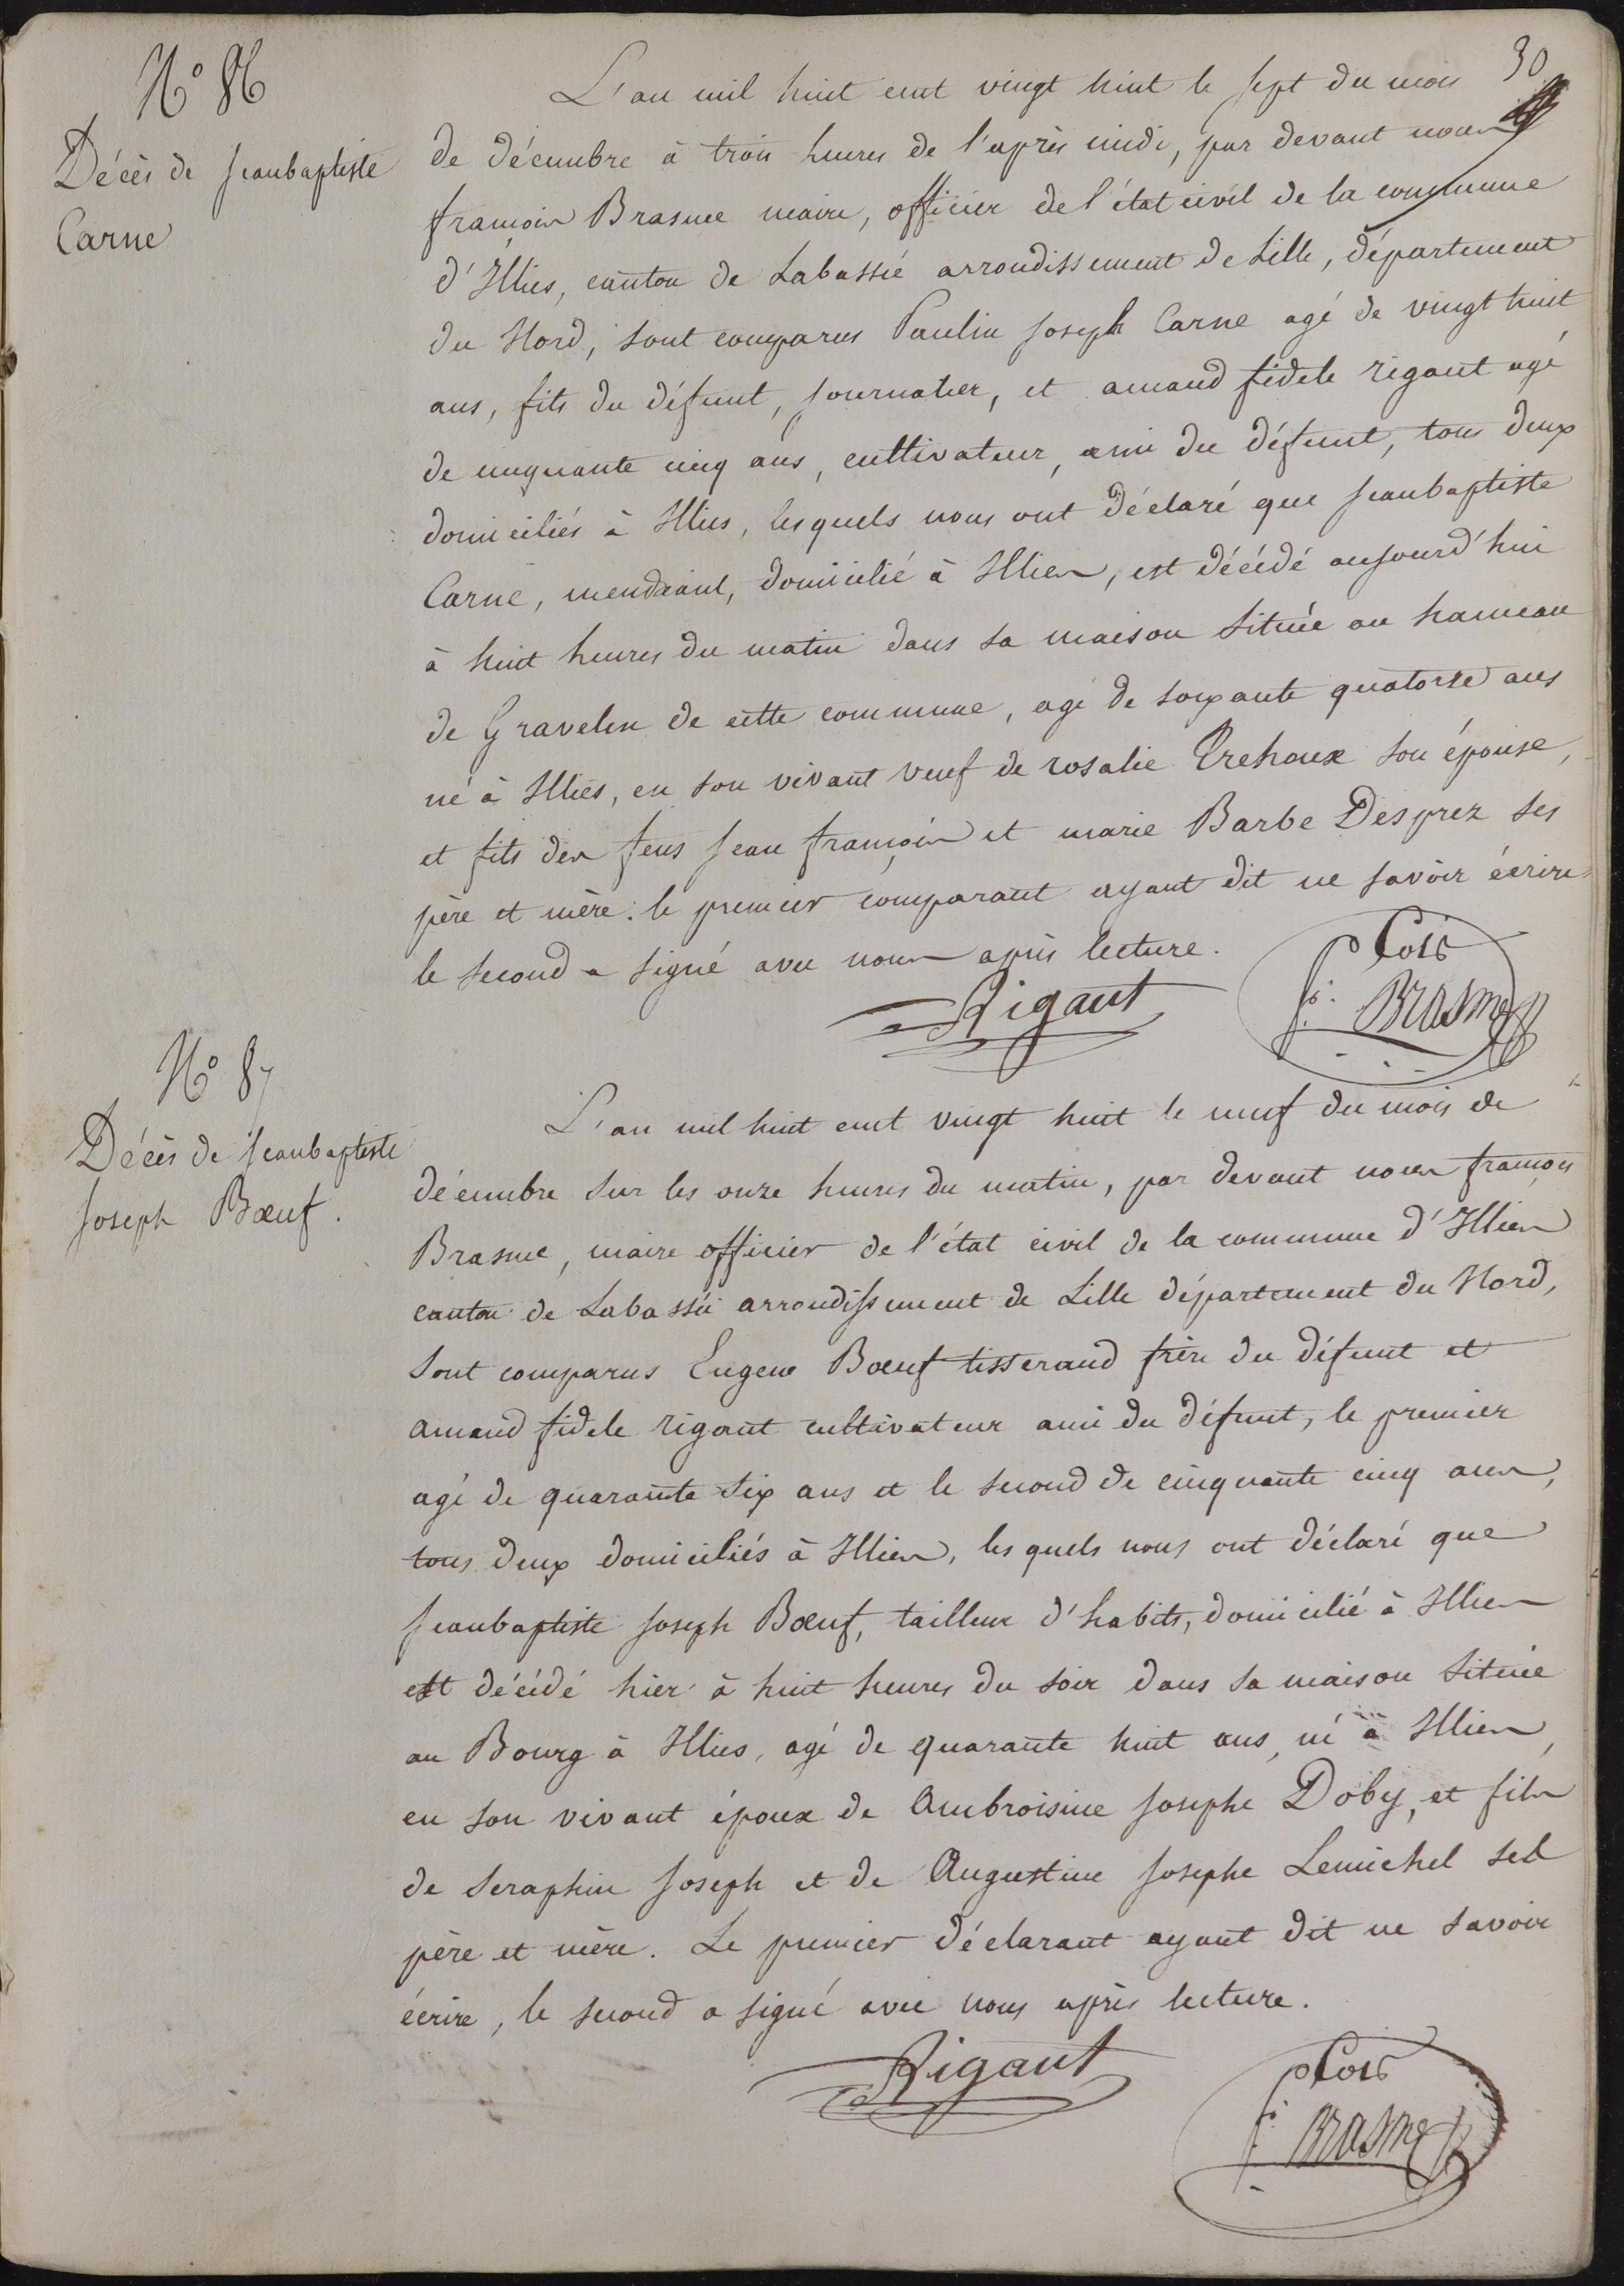 30
N° 86
Décès de Jeanbaptiste
Carne
L'an mil huit cent vingt huit le sept du mois
de décembre à trois heures de l'après midi, par devant nous
françois Brasme maire, officier de l'état civil de la commune
d'Illies, canton de Labassée arrondissement de Lille, département
du Nord, sont comparus Paulin Joseph Carne agé de vingt huit
ans, fils du défunt, journalier, et amand fidele rigaut agé
de cinquante cinq ans, cultivateur, ami du défunt, tous deux
domiciliés à Illies, lesquels nous ont déclaré que Jeanbaptiste
Carne, mendiant, domicilié à Illies, est décédé aujourd'hui
à huit heures du matin dans sa maison située au hameau
de Gravelin de cette commune, agé de soixante quatorze ans
né à Illies, en son vivant veuf de rosalie Crehoux son épouse,
et fils des feus Jean françois et marie Barbe Desprez ses
père et mère. le premier comparant ayant dit ne savoir écrire
le second a signé avec nous après lecture.
Rigaut
Brasme
N° 87
Décès de Jeanbaptiste
Joseph Bœuf.
L'an mil huit cent vingt huit le neuf du mois de
décembre sur les onze heures du matin, par devant nous françois
Brasme, maire officier de l'état civil de la commune d'Illies
canton de Labassée arrondissement de Lille département du Nord,
sont comparus Eugene Bœuf tisserand frère du défunt et
amand fidele rigaut cultivateur ami du défunt, le premier
agé de quarante six ans et le second de cinquante cinq ans,
tous deux domiciliés à Illies, lesquels nous ont déclaré que
Jeanbaptiste Joseph Bœuf, tailleur d'habits, domicilié à Illies
est décédé hier à huit heures du soir dans sa maison située
au Bourg à Illies, agé de quarante huit ans, né à Illies,
en son vivant époux de Ambroisine Josephe Doby, et fils
de Seraphin Joseph et de Augustine Josephe Lemichel ses
père et mère. Le premier déclarant ayant dit ne savoir
écrire, le second a signé avec nous après lecture.
Rigaut
Brasme